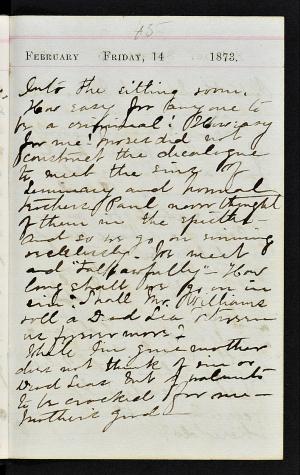 45
FEBRUARY FRIDAY, 14 1873.
Into the sitting room.
How easy for any one to
be a criminal! How easy
for me! Moses did not
construct the decalogue
to meet the sins of
Seminary and normal
teachers. Paul never thought
of them in the epistles—
And so we go on sinning
recklessly. We meet
and "talk awfully"— How
long shall we go on in
sin? Shall Mr. Williams
roll a Dead Sea
us forevermore?
While I'm gone mother
does not think of sin or
Dead Seas but of walnuts
to be cracked for me—
Mother's good—